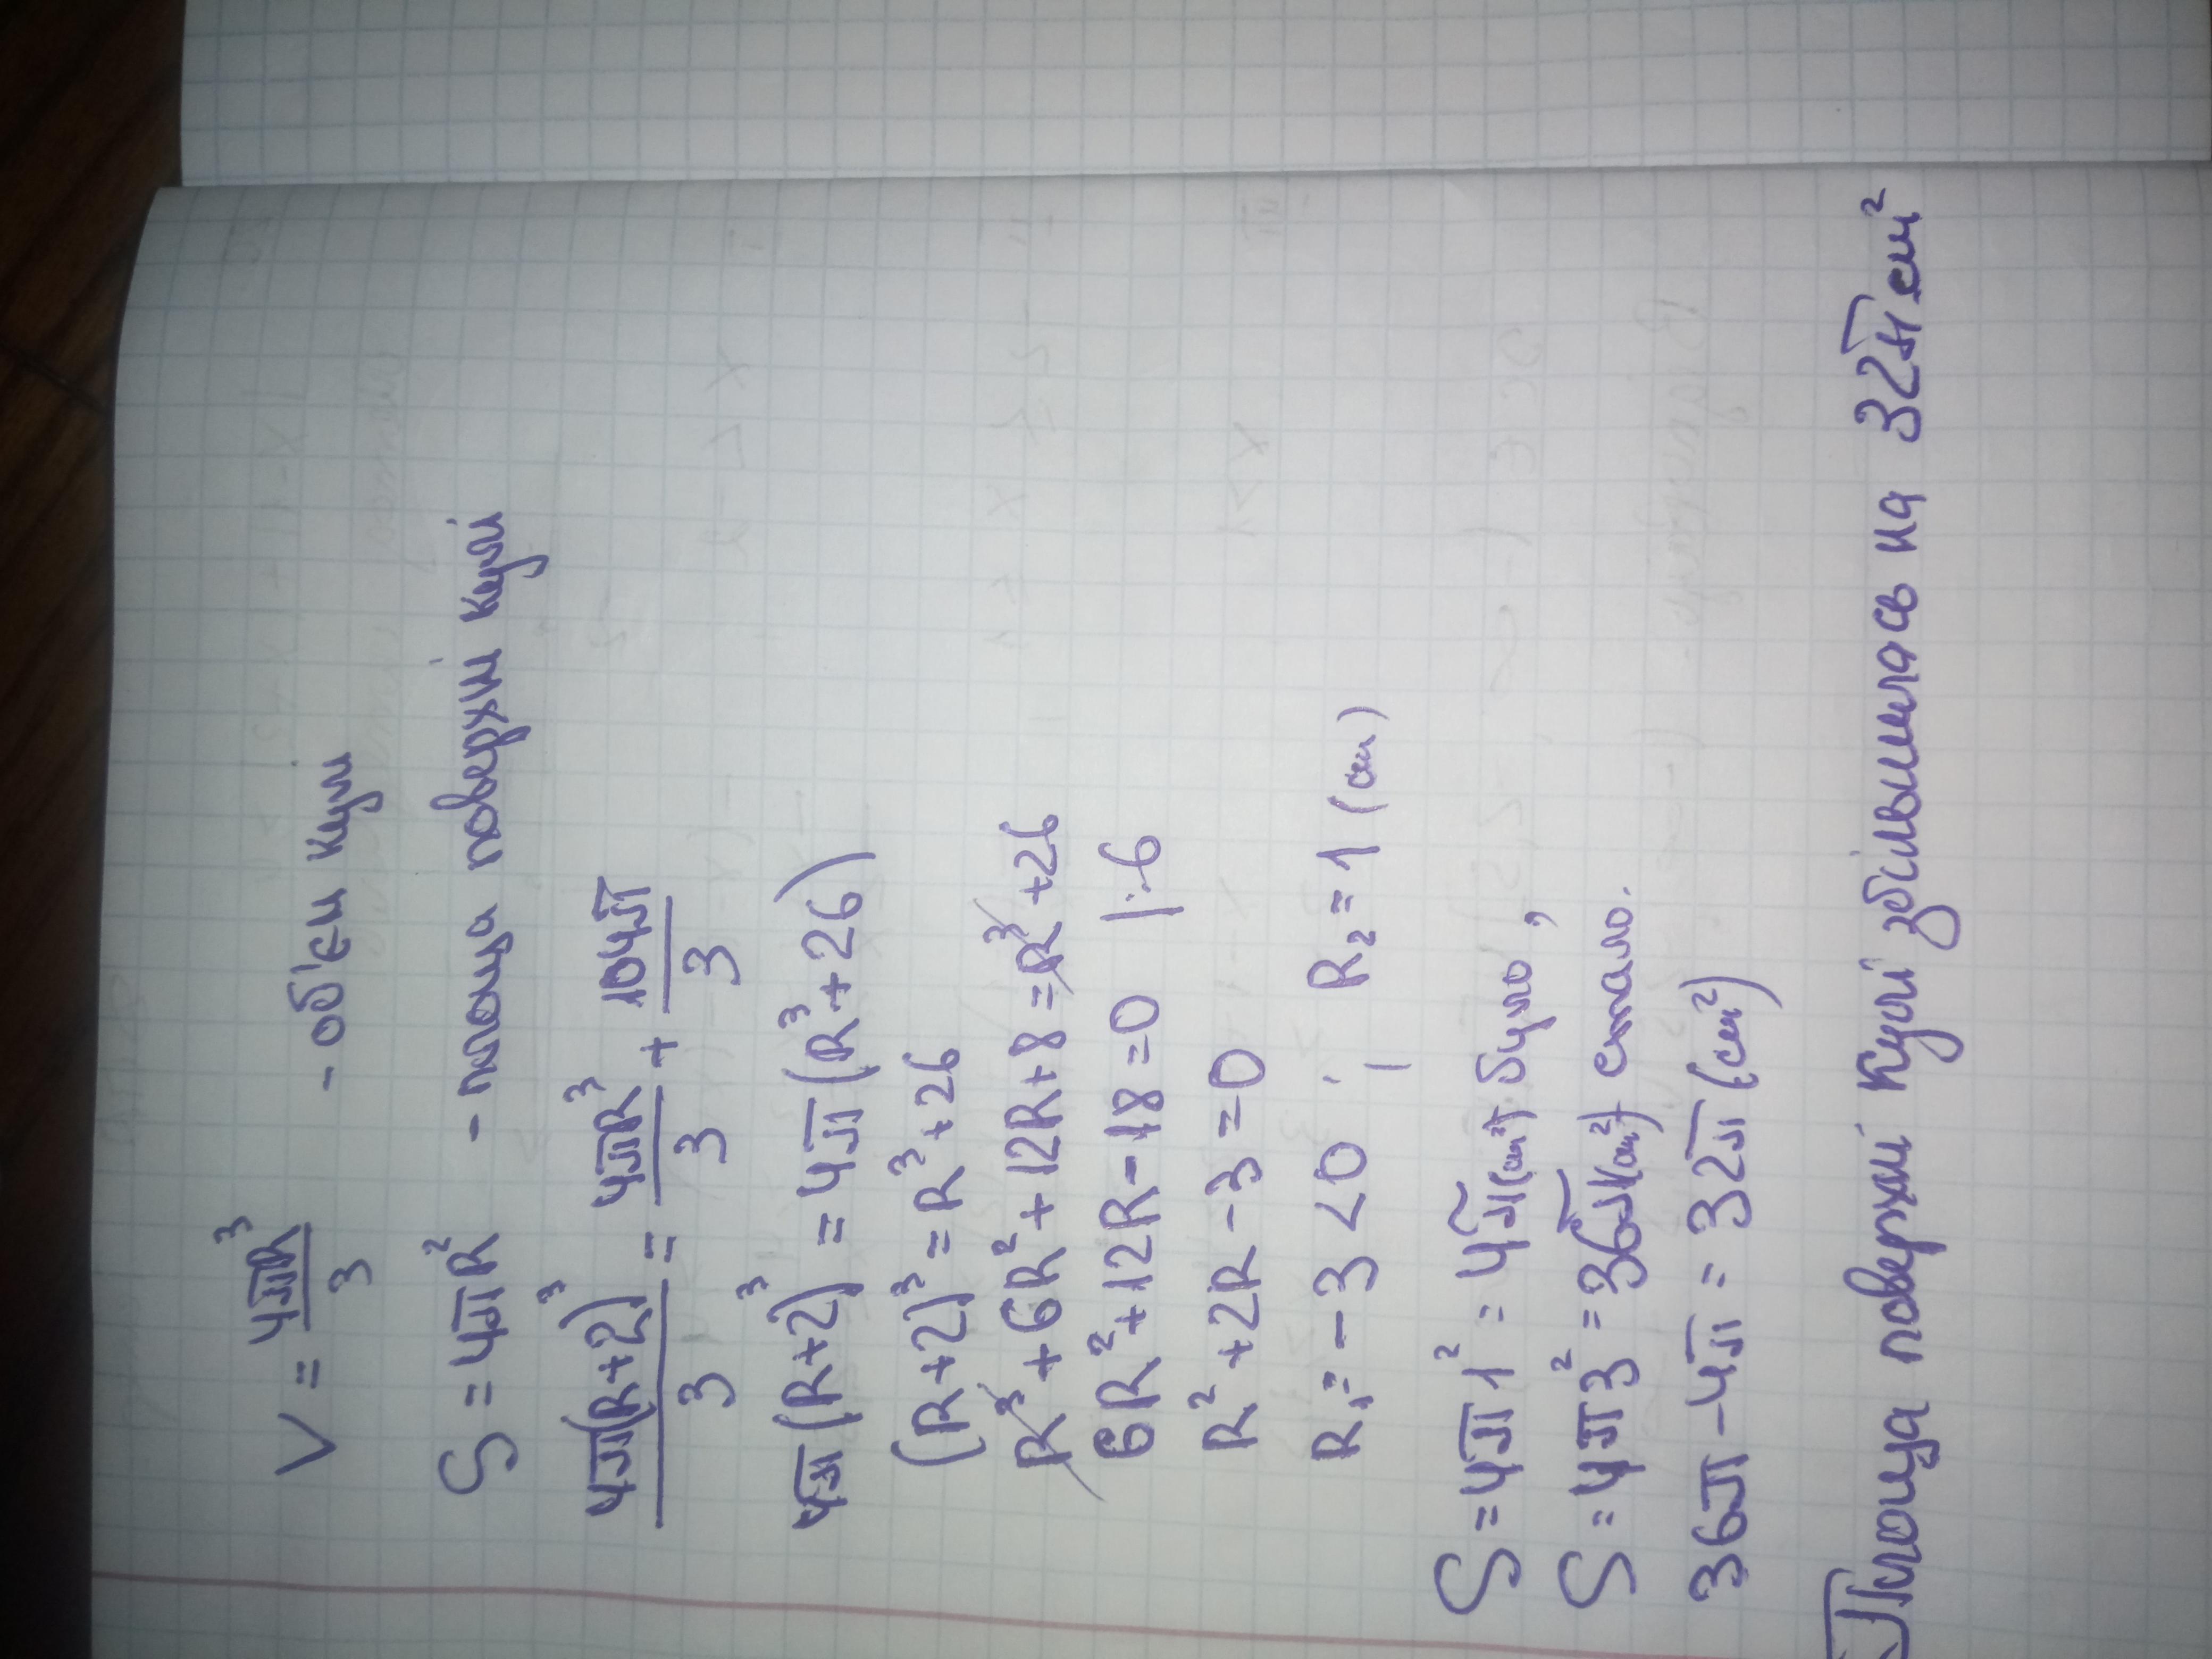 V = 4πR³/3 - об'єм кулі
S = 4πR² - площа поверхні кулі
4π(R+2)³/3 = 4πR³/3 + 104π/3
4π(R+2)³ = 4π(R³+26)
(R+2)³ = R³+26
R³+6R²+12R+8 = R³+26
6R²+12R-18=0 |:6
R²+2R-3=0
R₁=-3<0 ; R₂=1 (см)
S=4π1²=4π(см²) було,
S=4π3²=36π(см²) стало.
36π-4π=32π(см²)
Площа поверхні кулі збільшилась на 32π см²